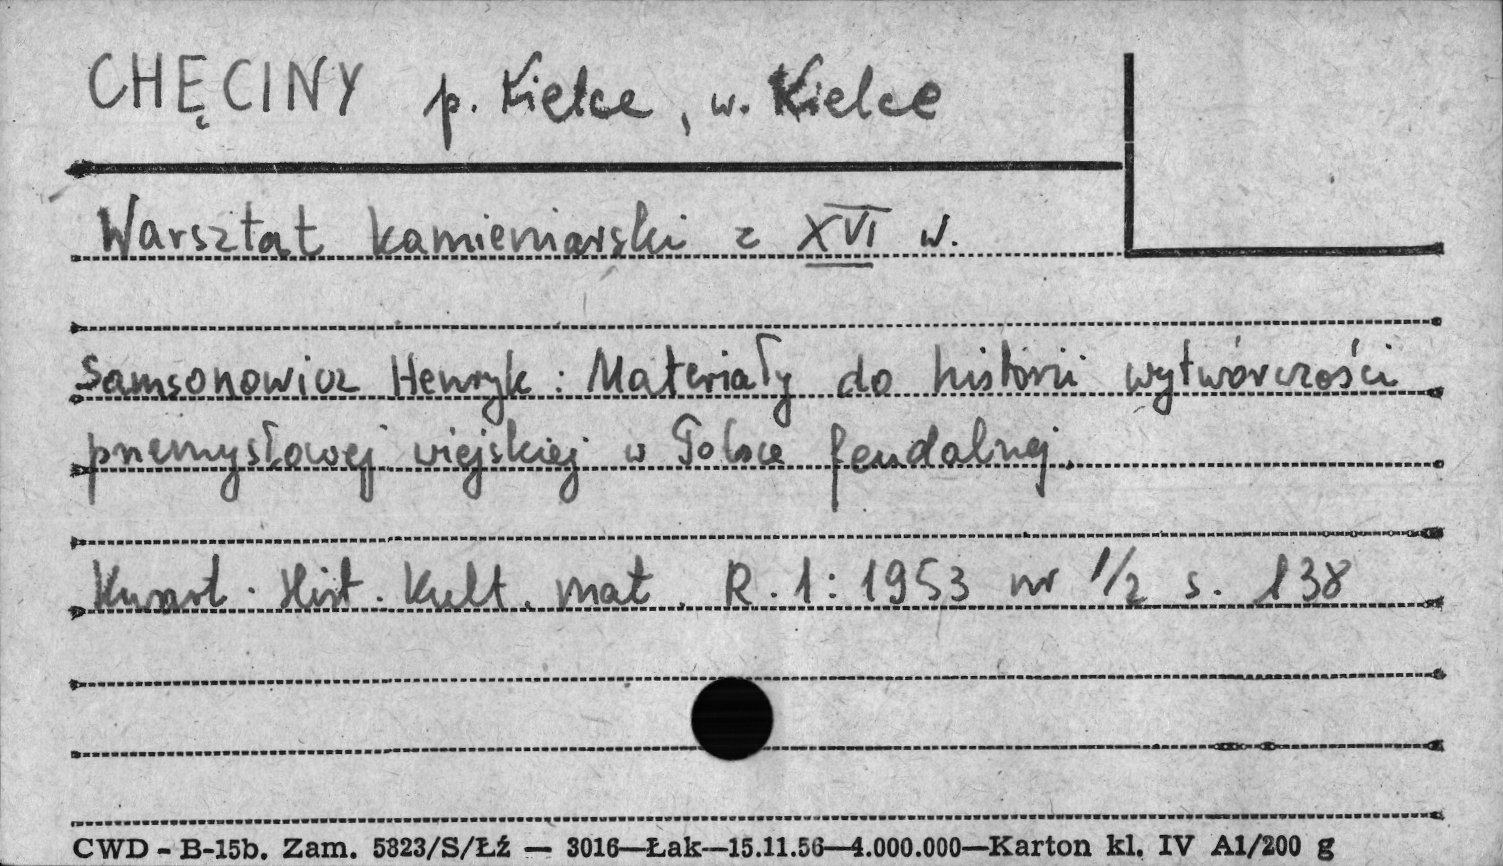 CHĘCINY p. Kielce, w. Kielce
Warsztat kamieniarski z XVI w.
Samsonowicz Henryk: Materiały do historii wytwórczości
przemysłowej wiejskiej w Polsce feudalnej.
Kwart. Hist. Kult. mat. R. 1: 1953 nr 1/2 s. 138
CWD - B-15b. Zam. 5323/S/Łź — 3016—Łak—15.11.56—4.000.000—Karton kl. IV A1/200 g